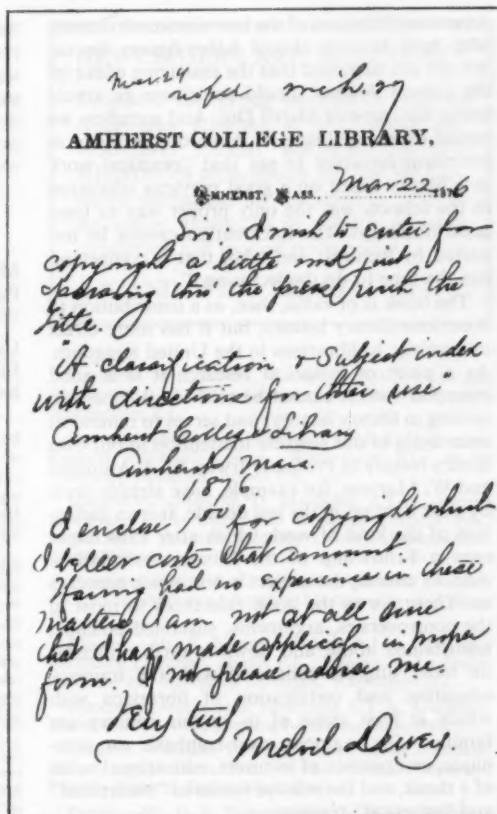 Mar 24
AMHERST COLLEGE LIBRARY,
AMHERST, MASS. Mar 22 1876
Sir: I wish to enter for
copyright a little work just
passing thro' the press with the
title.
"A classification & Subject index
with directions for their use"
Amherst College Library
Amherst Mass.
1876
I enclose 1.00 for copyright which
I believe costs that amount.
Having had no experience in these
matters I am not at all sure
that I hav made applicatn in proper
form. If not please advise me.
Very truly
Melvil Dewey